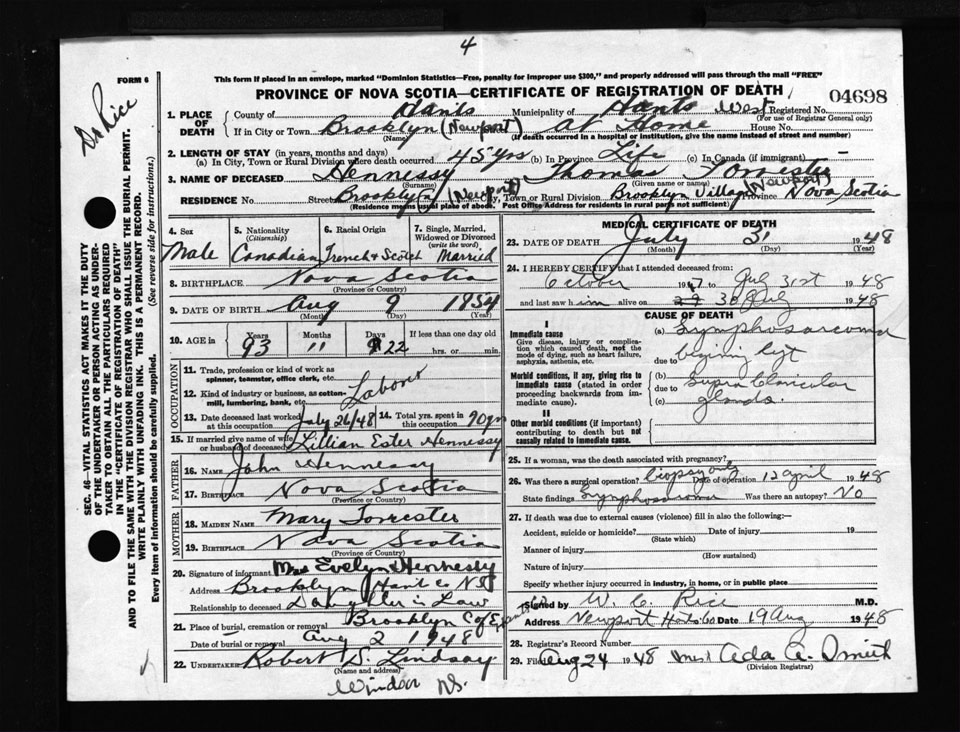 4
FORM 6
This form if placed in an envelope, marked "Dominion Statistics—Free, penalty for improper use $300," and properly addressed will pass through the mail "FREE"
PROVINCE OF NOVA SCOTIA—CERTIFICATE OF REGISTRATION OF DEATH
Dr Rice
SEC. 46—VITAL STATISTICS ACT MAKES IT THE DUTY
OF THE UNDERTAKER OR PERSON ACTING AS UNDER-
TAKER TO OBTAIN ALL THE PARTICULARS REQUIRED
IN THE "CERTIFICATE OF REGISTRATION OF DEATH"
AND TO FILE THE SAME WITH THE DIVISION REGISTRAR WHO SHALL ISSUE THE BURIAL PERMIT.
WRITE PLAINLY WITH UNFADING INK. THIS IS A PERMANENT RECORD.
Every item of Information should be carefully supplied. (See reverse side for instructions.)
1. PLACE OF DEATH County of Hants Municipality of Hants West Registered No. 04698
(For use of Registrar General only)
If in City or Town Brooklyn (Newport) At Home House No.
(Name) (If death occurred in a hospital or institution, give the name instead of street and number)
2. LENGTH OF STAY (in years, months and days)
(a) In City, Town or Rural Division where death occurred 45 yrs (b) In Province Life (c) In Canada (if immigrant) -
3. NAME OF DECEASED Hennessy Thomas Forrester
(Surname) (Given name or names)
RESIDENCE No. Street Brooklyn (Newport) City, Town or Rural Division Brooklyn Village (Newport) Province Nova Scotia
(Residence means usual place of abode. Post Office Address for residents in rural parts not sufficient)
4. Sex
Male
5. Nationality
(Citizenship)
Canadian
6. Racial Origin
French & Scotch
7. Single, Married,
Widowed or Divorced
(write the word)
Married
8. BIRTHPLACE Nova Scotia
(Province or Country)
9. DATE OF BIRTH Aug 9 1854
(Month) (Day) (Year)
10. AGE in Years Months Days If less than one day old
93 11 22 hrs. or min.
OCCUPATION
11. Trade, profession or kind of work as
spinner, teamster, office clerk, etc.
12. Kind of industry or business, as cotton-
mill, lumbering, bank, etc. Laborer
13. Date deceased last worked at this occupation July 26/48 14. Total yrs. spent in this occupation 70 yrs
15. If married give name of wife or husband of deceased Lillian Ester Hennessy
FATHER
16. NAME John Hennessy
17. BIRTHPLACE Nova Scotia
(Province or Country)
MOTHER
18. MAIDEN NAME Mary Forrester
19. BIRTHPLACE Nova Scotia
(Province or Country)
20. Signature of informant Mrs Evelyn Hennessy
Address Brooklyn Hants Co NS
Relationship to deceased Daughter in Law
21. Place of burial, cremation or removal Brooklyn C of E
Date of burial or removal Aug 2 1948
22. UNDERTAKER Robert D. Lindsay
(Name and address)
Windsor NS.
MEDICAL CERTIFICATE OF DEATH
23. DATE OF DEATH July 31 1948
(Month) (Day) (Year)
24. I HEREBY CERTIFY that I attended deceased from:
October 1947 to July 31st 1948
and last saw him alive on 30 July 1948
CAUSE OF DEATH
I
Immediate cause
Give disease, injury or complica-
tion which caused death, not the
mode of dying, such as heart failure,
asphyxia, asthenia, etc.
(a) Lymphosarcoma
due to left
Morbid conditions, if any, giving rise to
immediate cause (stated in order
proceeding backwards from im-
mediate cause).
(b) Supraclavicular
due to
(c) glands.
II
Other morbid conditions (if important)
contributing to death but not
causally related to immediate cause.
25. If a woman, was the death associated with pregnancy?
26. Was there a surgical operation? biopsy only Date of operation 12 April 1948
State findings Lymphosarcoma Was there an autopsy? No
27. If death was due to external causes (violence) fill in also the following:—
Accident, suicide or homicide? Date of injury 19
(State which)
Manner of injury
(How sustained)
Nature of injury
Specify whether injury occurred in industry, in home, or in public place
Signed by W. C. Rice M.D.
Address Newport Hants Co Date 19 Aug 1948
28. Registrar's Record Number
29. Filed Aug 24 1948 Ada A. Smith
(Division Registrar)